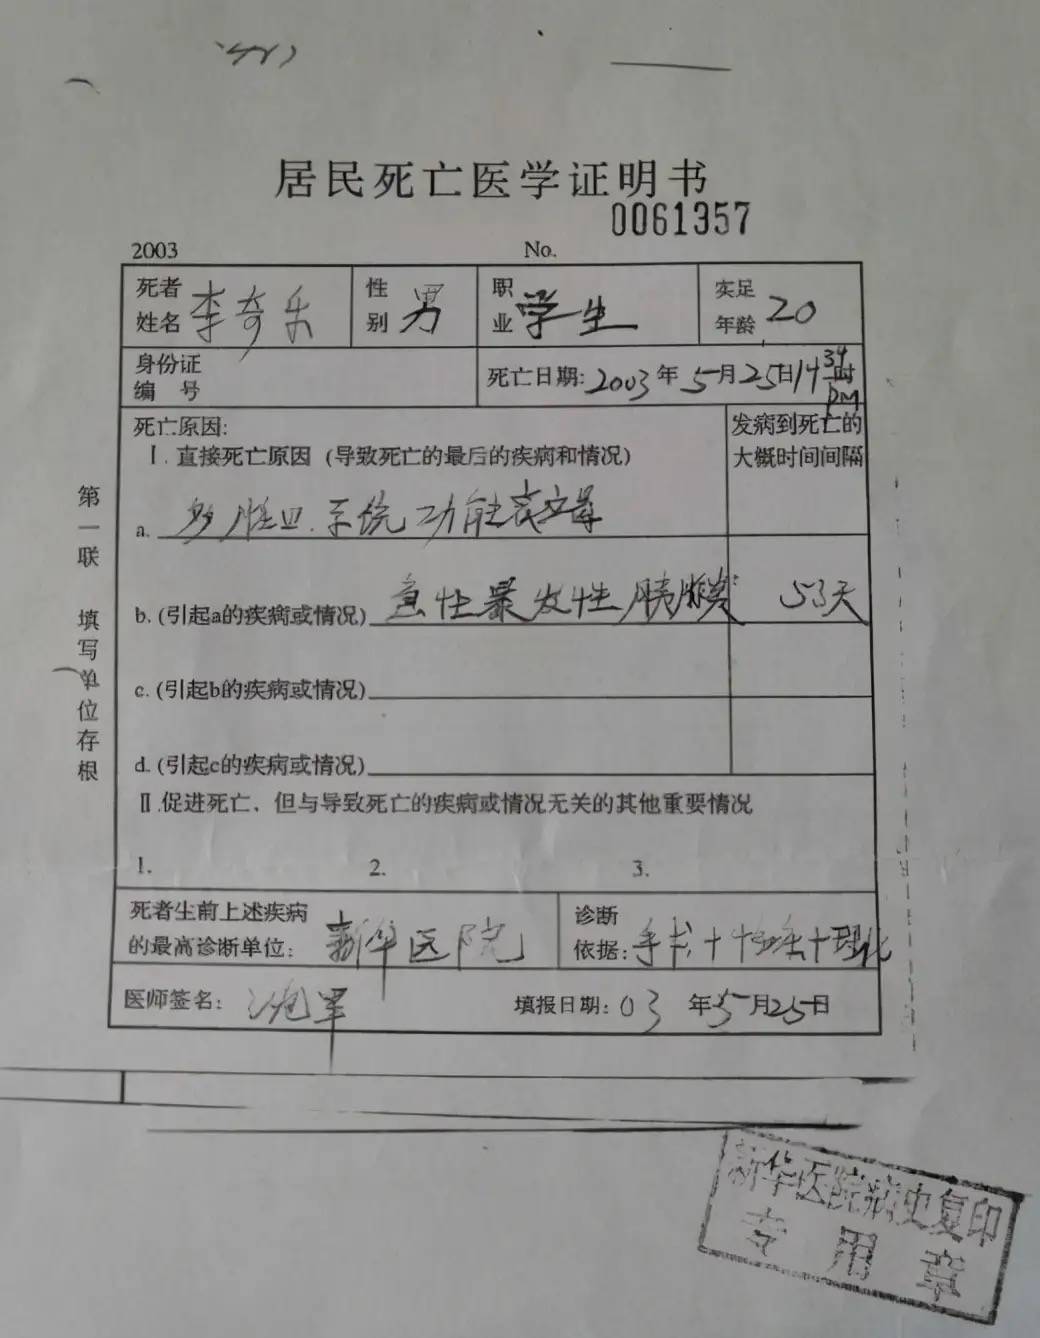 居民死亡医学证明书
0061357
2003 No.
死者姓名 李奇乐 性别 男 职业 学生 实足年龄 20
身份证编号 死亡日期: 2003年5月25日14 34时 PM
死亡原因: 发病到死亡的大概时间间隔
Ⅰ.直接死亡原因（导致死亡的最后的疾病和情况）
a. 多脏 系统功能衰竭
b.(引起a的疾病或情况) 性暴发性胰腺炎 53天
c.(引起b的疾病或情况)
d.(引起c的疾病或情况)
Ⅱ.促进死亡、但与导致死亡的疾病或情况无关的其他重要情况
1. 2. 3.
死者生前上述疾病的最高诊断单位: 新华医院 诊断依据: 手术+ +理化
医师签名: 填报日期: 03年5月25日
第一联 填写单位存根
新华医院病史复印
专用章